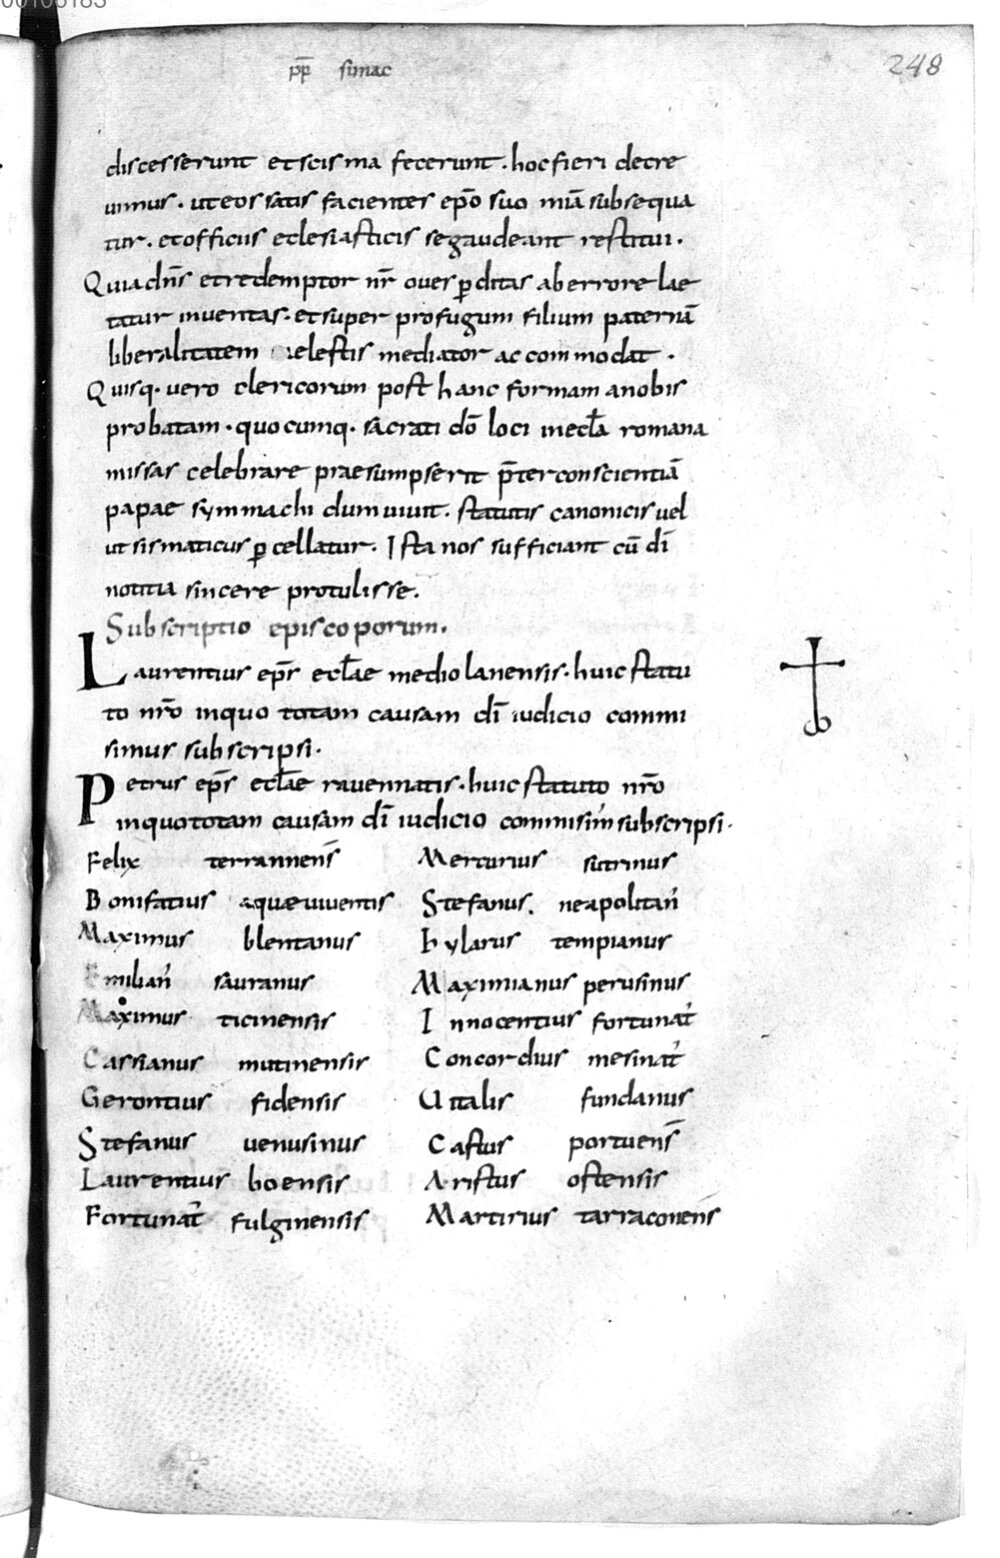 00106183
pp̄ simac
248
discesserunt et scisma fecerunt. hoc fieri decre
uimus. ut eos satis facientes ep̄o suo mīa subsequa
tur. et officiis eclesiasticis se gaudeant restitui.
Quia dn̄s et redemptor nr̄ oues ꝑditas ab errore lae
tatur inuentas. et super profugum filium paternā
liberalitatem celestis mediator accommodat.
Quisq. uero clericorum post hanc formam a nobis
probatam. quocumq. sacrati dō loci in ecl̄a romana
missas celebrare praesumpserit p̄ter conscientiā
papae symmachi dum uiuit. statutis canonicis uel
ut sismaticus ꝑcellatur. Ista nos sufficiant cū dī
notitia sincere protulisse.
Subscriptio episcoporum.
Laurentius ep̄s ecl̄ae mediolanensis. huic statu
to nr̄o in quo totam causam dī iudicio commi
simus subscripsi.
Petrus ep̄s ecl̄ae rauennatis. huic statuto nr̄o
in quo totam causam dī iudicio commisim' subscripsi.
Felix terrannens̄ Mercurius sutrinus
Bonifatius aquæuiuentis Stefanus. neapolitan'
Maximus blentanus hylarus tempianus
Emilian' sauranus Maximianus perusinus
Maximus ticinensis Innocentius fortunat'
Cassianus mutinensis Concordius mesinat'
Gerontius fidensis Uitalis fundanus
Stefanus uenusinus Castus portuens̄
Laurentius boensis Aristus ostensis
Fortunat' fulginensis Martirius tarraconens̄